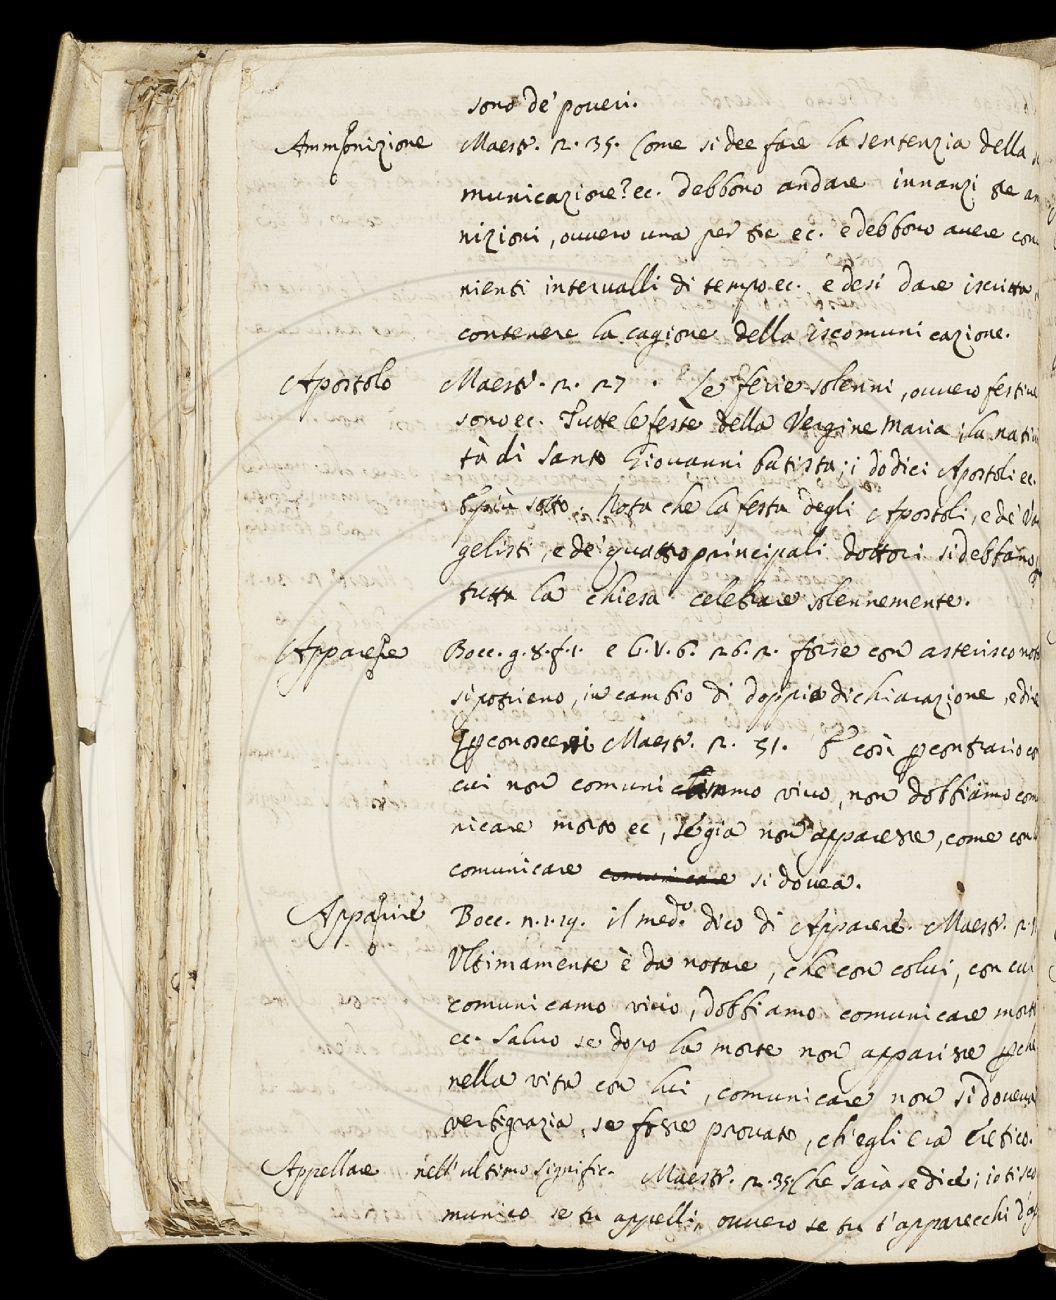 sono de' poveri.
Ammonizione Maestr. 2. 35. Come si dee fare la sentenzia della
municazione? ec. debbono andare innanzi tre am
nizioni, ovvero una per tre ec. e debbono avere con
nienti intervalli di tempo ec. e desi dare iscritta
contenere la cagione della iscomunicazione.
Apostolo Maestr. 2. 27. Le ferie solenni, ovvero festive
sono ec. Tutte le feste della Vergine Maria; la nativi
tà di Santo Giovanni batista; i dodici Apostoli ec.
E più sotto. Nota che la festa degli Apostoli, e de' Va
gelisti, e de' quattro principali dottori si debbano
tutta la chiesa celebrare solennemente.
Apparere Bocc. g. 8. f. 1. e G. V. 6. 26. 2. forse con asterisco not
si potrieno, in cambio di doppia dichiarazione, e di
conoscersi Maestr. 2. 51. E così per contrario co
cui non comunicammo vivo, non dobbiamo com
nicare morto ec, se già non apparesse, come con
comunicare comunicare si dovea.
Apparire Bocc. n. 1. 19. il med.o dico di Apparere. Maestr. 2.
Ultimamente è da notare, che con colui, con cui
comunicamo vivo, dobbiamo comunicare morto
ec. salvo se dopo la morte non apparisse perchè
nella vita con lui, comunicare non si doveva
verbigrazia, se fosse provato, ch'egli era eretico.
Appellare nell'ultimo signific. Maestr. 2. 35. Che sarà se dice; io ti sco
munico se tu appelli, ovvero se tu t'apparecchi d'ap